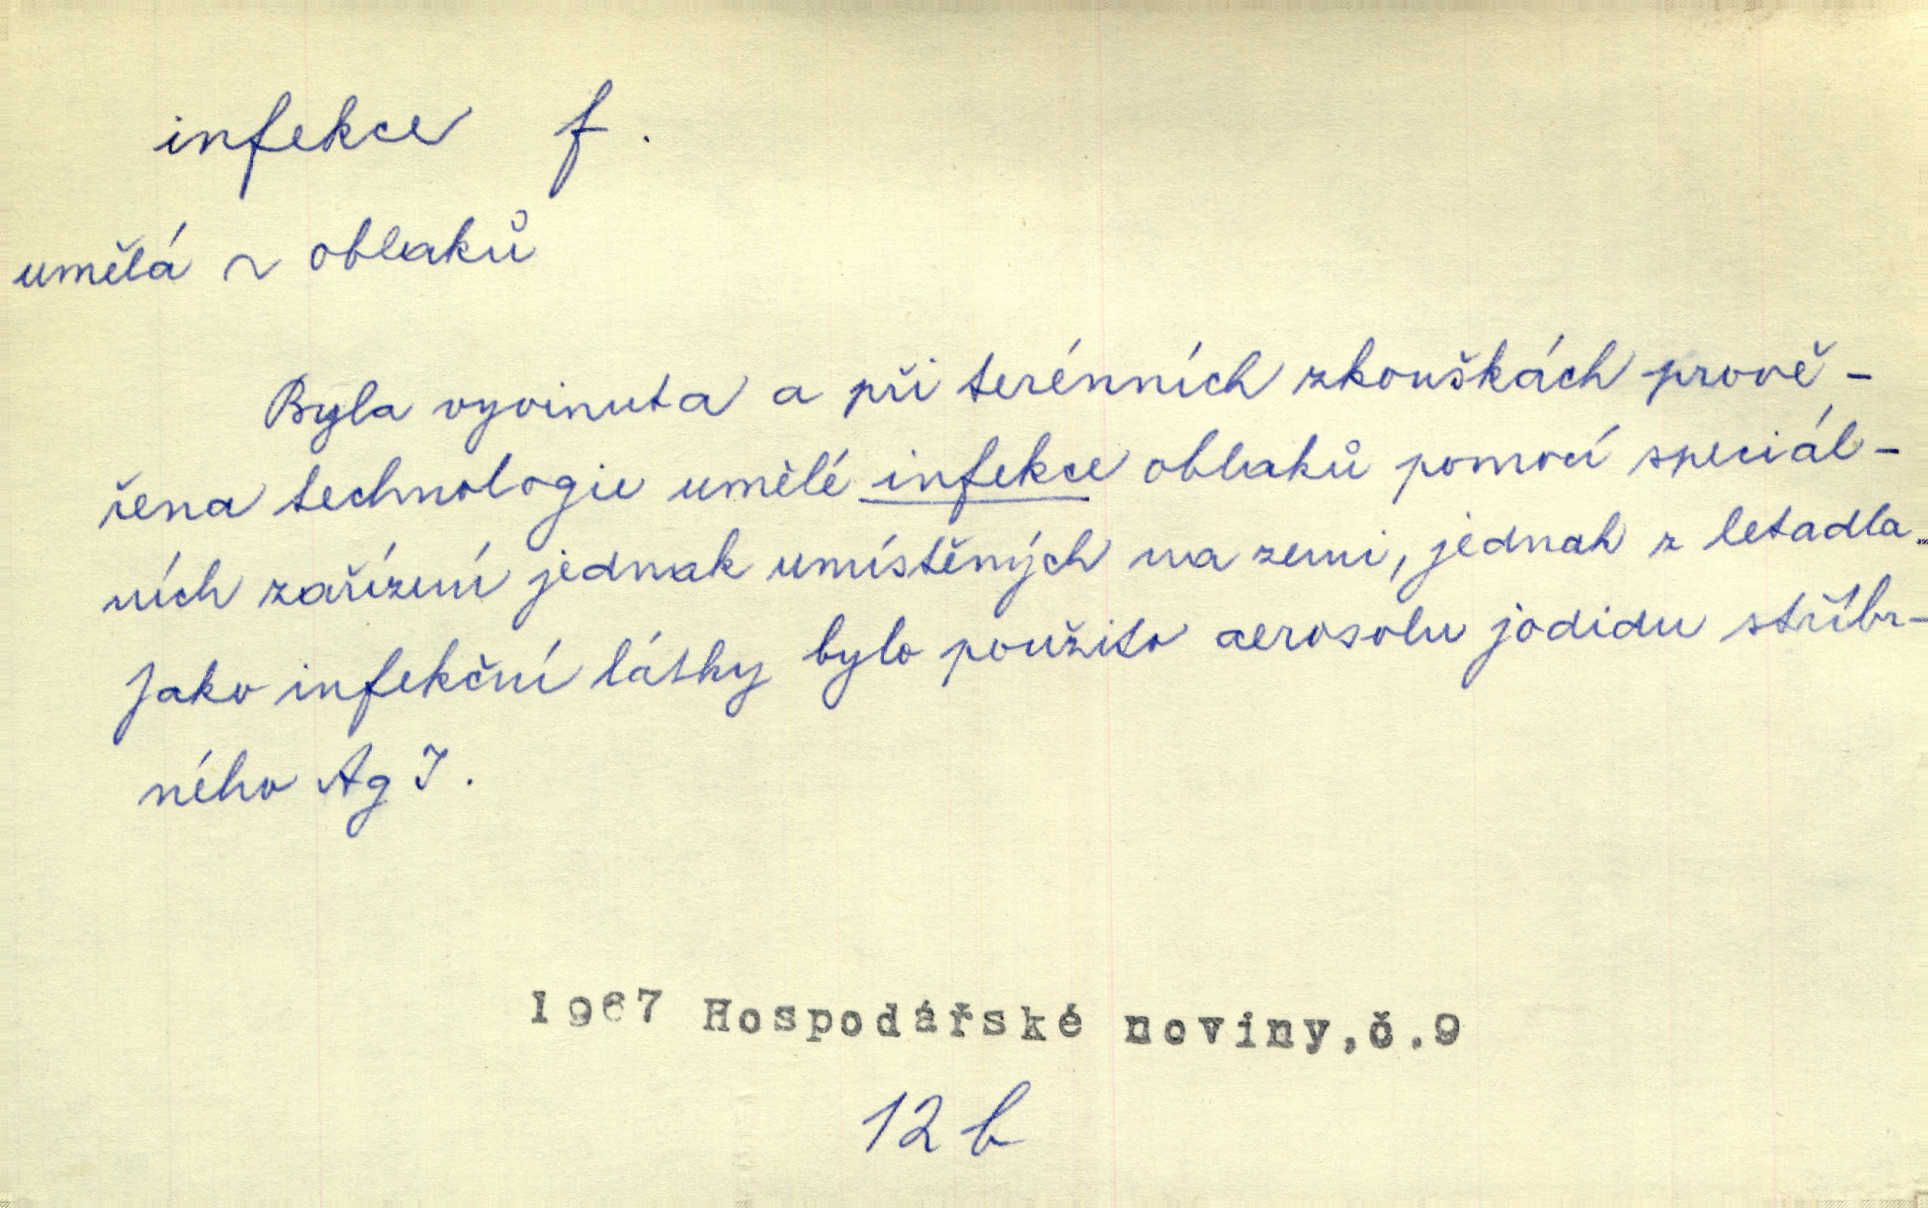 infekce f.
umělá ~ oblaků
Byla vyvinuta a při terénních zkouškách prově-
řena technologie umělé infekce oblaků pomocí speciál-
ních zařízení jednak umístěných na zemi, jednak z letadla.
Jako infekční látky bylo použito aerosolu jodidu stříbr-
ného Ag I.
1967 Hospodářské noviny,č.9
12 b